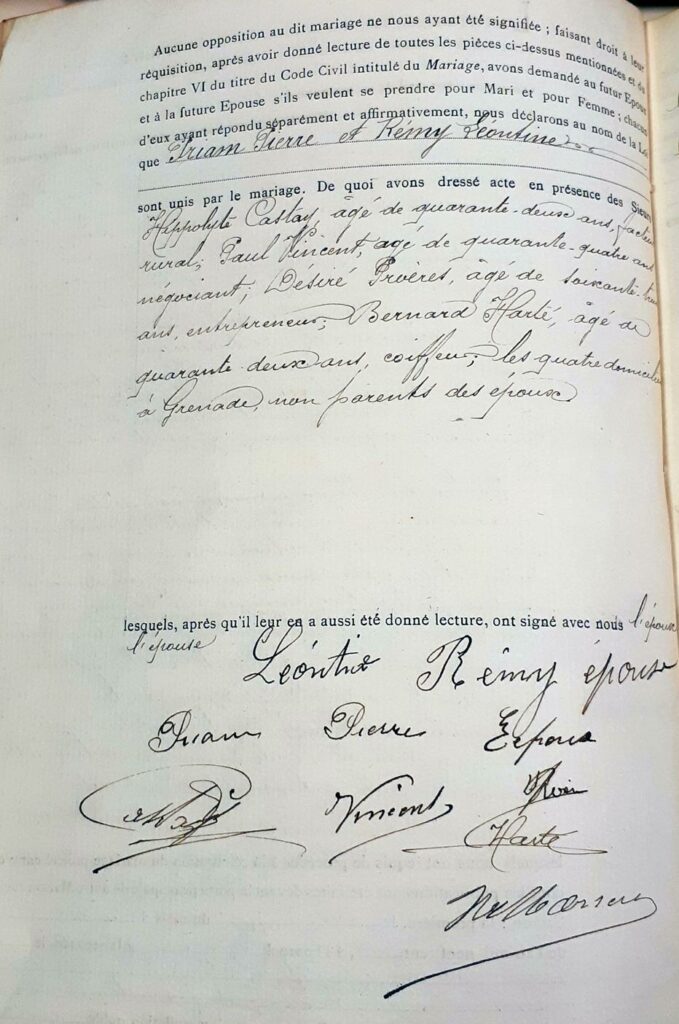 Aucune opposition au dit mariage ne nous ayant été signifiée ; faisant droit à leur
réquisition, après avoir donné lecture de toutes les pièces ci-dessus mentionnées et du
chapitre VI du titre du Code Civil intitulé du Mariage, avons demandé au futur Epoux
et à la future Epouse s'ils veulent se prendre pour Mari et pour Femme ; chacun
d'eux ayant répondu séparément et affirmativement, nous déclarons au nom de la Loi
que Priam Pierre et Rémy Léontine
sont unis par le mariage. De quoi avons dressé acte en présence des Sieurs
Hippolyte Castay, âgé de quarante-deux ans, facteur
rural; Paul Vincent, âgé de quarante-quatre ans
négociant; Désiré Provères, âgé de soixante-trois
ans, entrepreneur; Bernard Harté, âgé de
quarante-deux ans, coiffeur; les quatre domiciliés
à Grenade, non parents des époux
lesquels, après qu'il leur en a aussi été donné lecture, ont signé avec nous l'épouse
l'épouse
Léontine Rémy épouse
Priam Pierre Epoux
Vincent
Harté